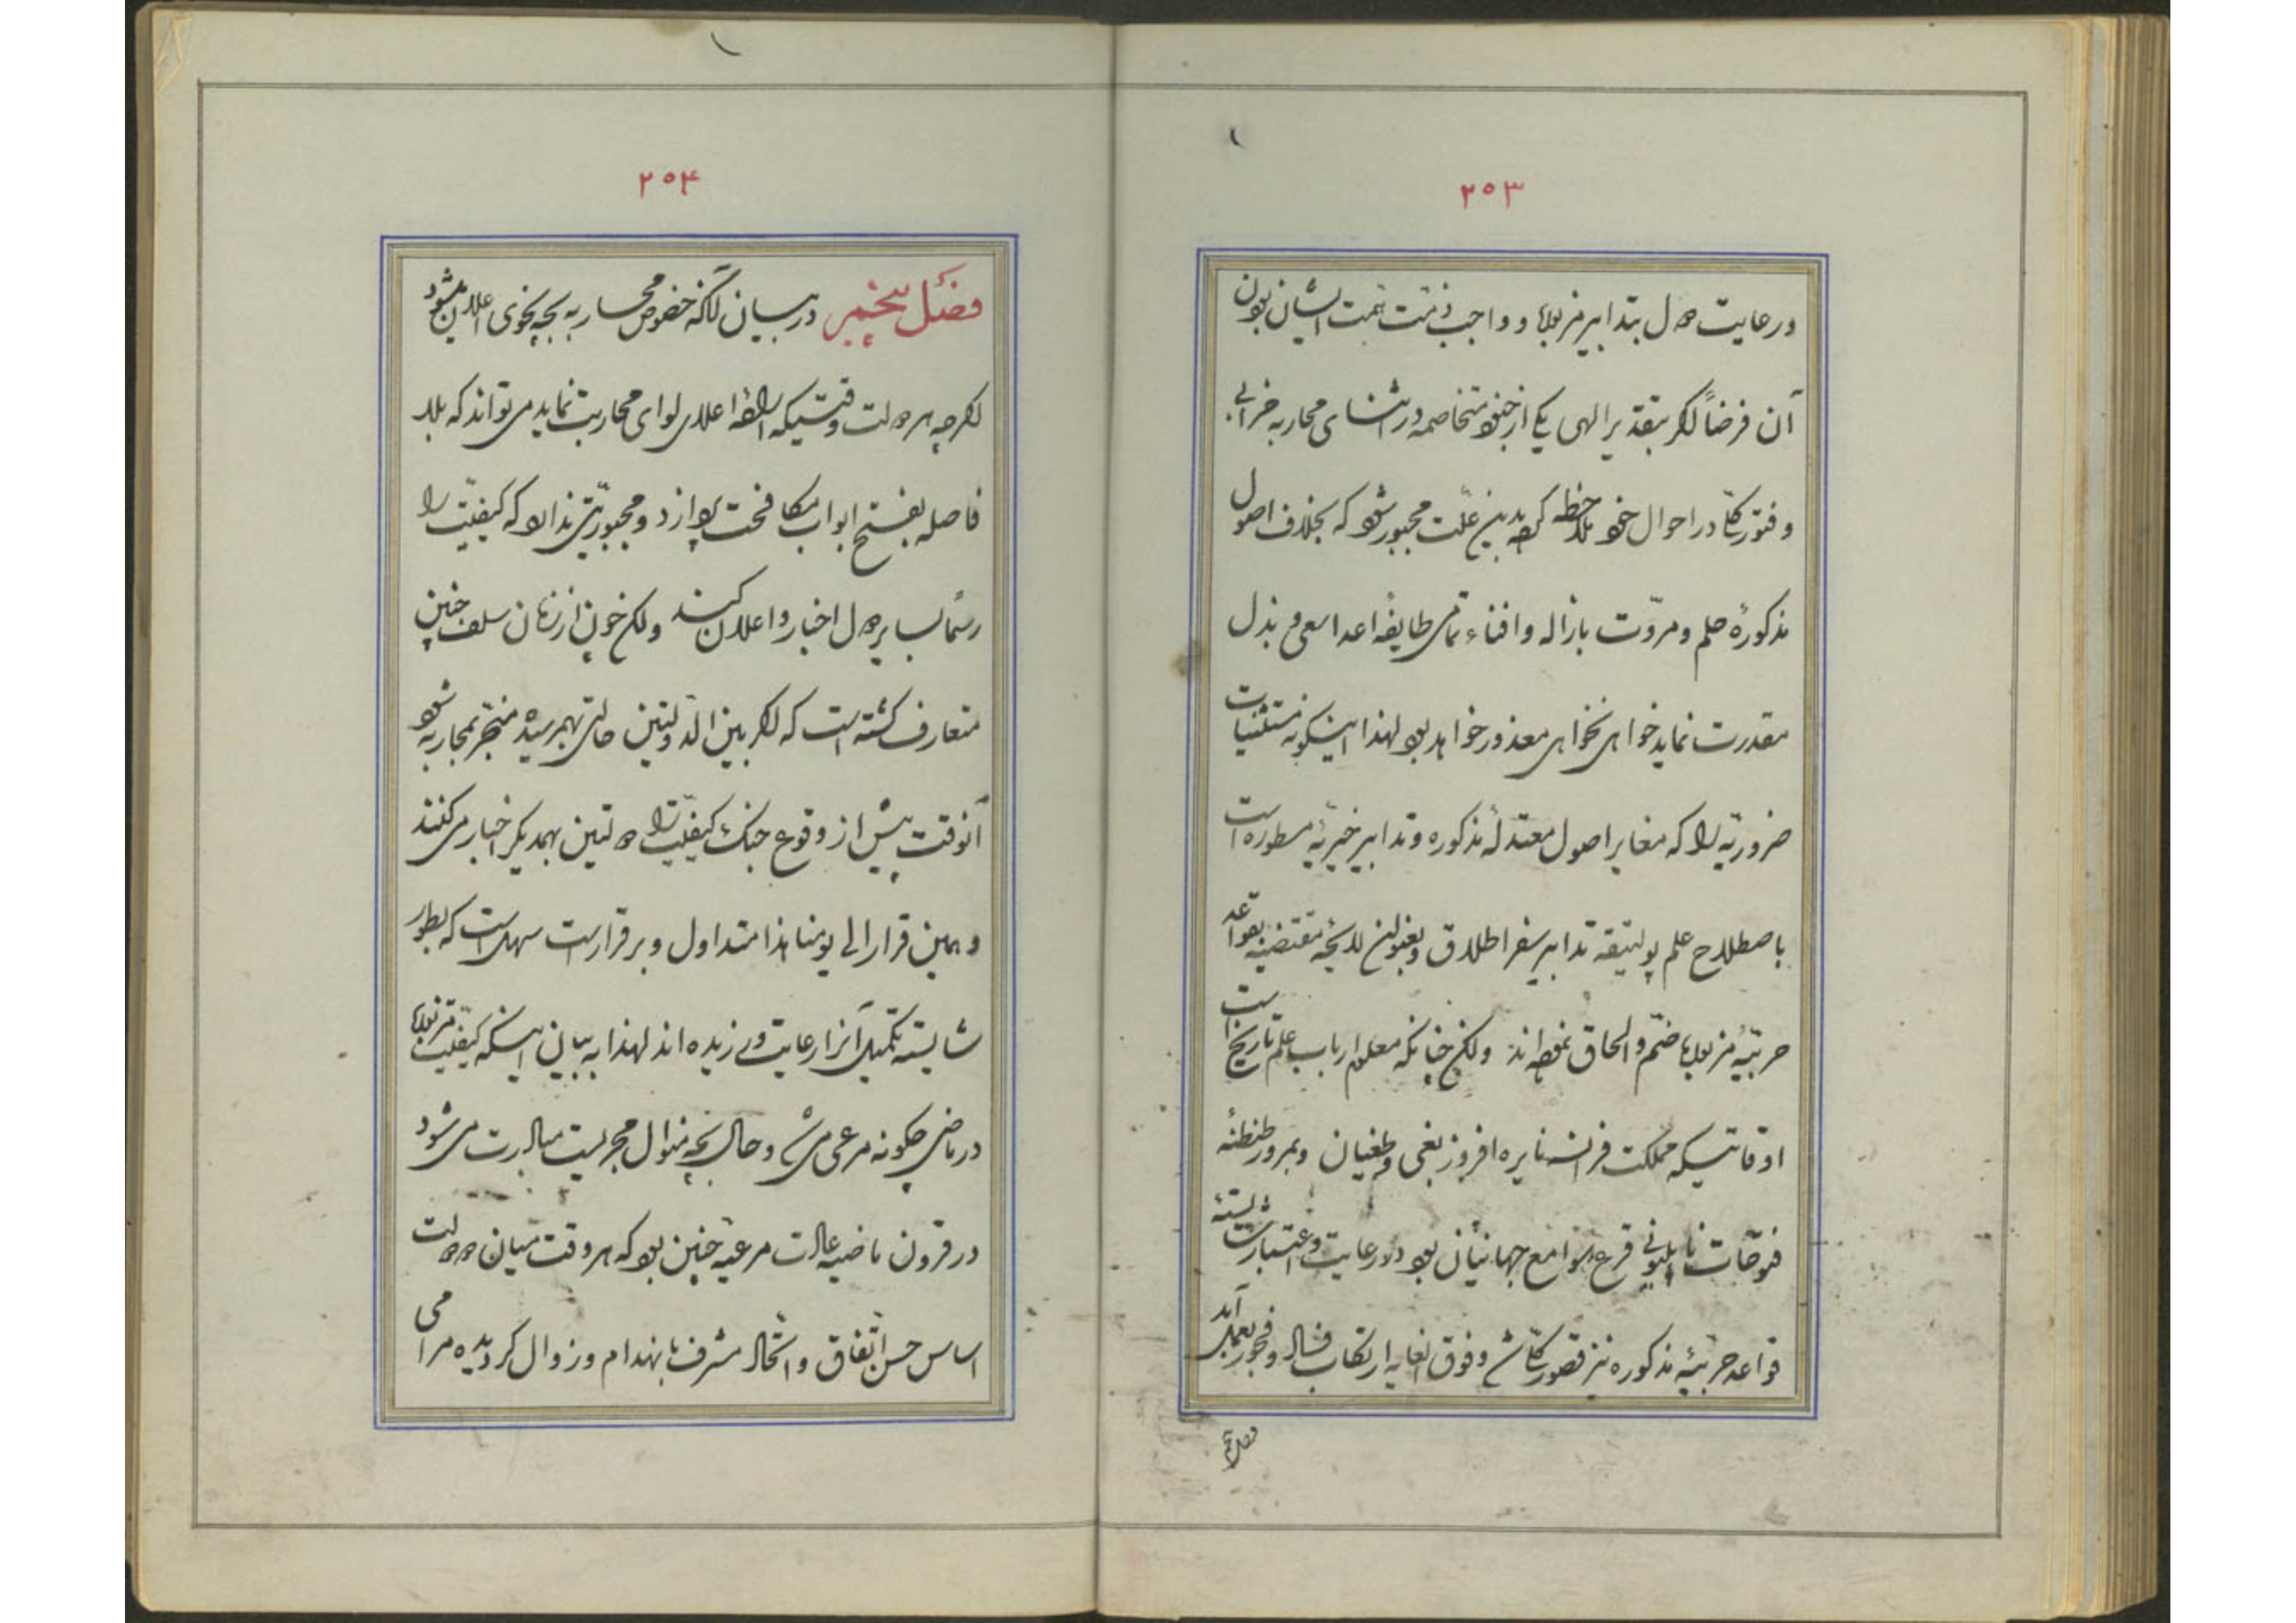 ۲۵۳
در رعایت دول بتدابیر مزبوره و واجب ذمت همت ایشان بودن
آن فرضاً اگر بتقدیر الهی یکی از جنود متخاصمه در اثنای محاربه خرابی
و فتور کلّی در احوال خود ملاحظه کرده بدین علّت مجبور شود که بخلاف اصول
مذکورهٔ حلم و مروّت بازاله و افناء تمامی طایفهٔ اعدا سعی و بذل
مقدرت نماید خواهی نخواهی معذور خواهد بود لهذا اینگونه مستثنیات
ضروریّه را که مغایر اصول معتدلهٔ مذکوره و تدابیر خیریّهٔ مسطوره است
باصطلاح علم پولیتیقه تدابیر سفر اطلاق و بعنوان لایحهٔ مقتضیه بقواعد
حربیّهٔ مزبوره ضمّ و الحاق نموده‌اند ولکن چنانکه معلوم ارباب علم تاریخ است
اوقاتیکه مملکت فرانسه نایره افروز بغی و طغیان و بمرور طنطنهٔ
فتوحات ناپلیونی قرع سوامع جهانیان بود در رعایت و اعتبار شایستهٔ
قواعد حربیّهٔ مذکوره نیز قصور کلّی شد و فوق الغایه ارتکاب فساد و فجور بعمل آمد
فصل
۲۵۴
فصل پنجم در بیان آنکه خصوص محاربه بچه نحوی اعلان میشود
اگرچه هر دولت وقتیکه اراده اعلای لوای محاربت نماید می تواند که بلا
فاصله بفتح ابواب مکافحت پردازد و مجبوریّتی ندارد که کیفیّت را
رسماً بسایر دول اخبار و اعلان کند ولکن چون از زمان سلف چنین
متعارف گشته است که اگر بین الدولتین حالتی بهمرسیده منجر بمحاربه شود
آنوقت پیش از وقوع جنگ کیفیّت را دولتین بهمدیگر اخبار می کنند
و همین قرار الی یومنا هذا متداول و برقرار است سهل است که بطور
شایسته تکمیل آنرا رعایت ورزیده‌اند لهذا به بیان اینکه کیفیّت مزبوره
در ماضی چگونه مرعی می شد و حال بچه منوال مجریت مبادرت می شود
در قرون ماضیه عادت مرعیه چنین بود که هر وقت میان دو دولت
اساس حسن اتّفاق و اتّحاد مشرف بانهدام و زوال گردیده مرامی